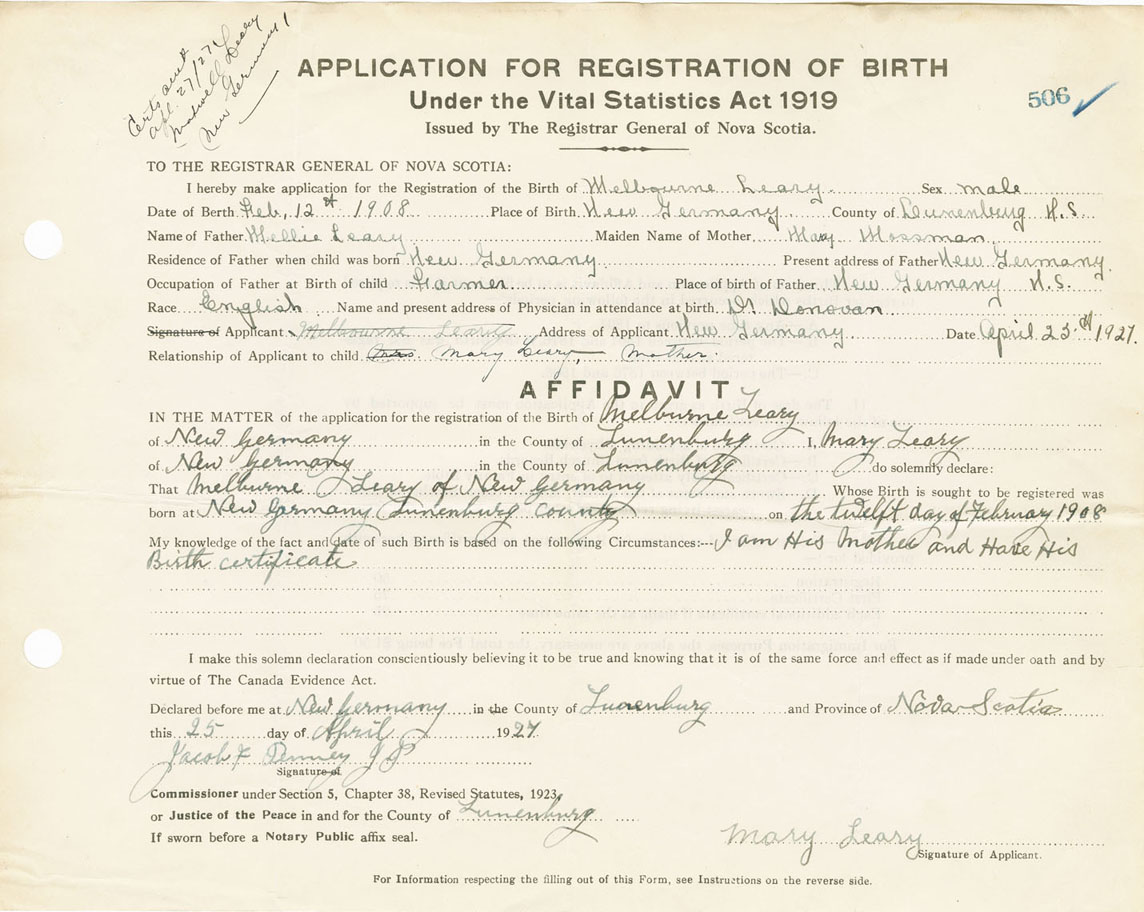 Certs sent
Apl. 27/27 to
Maxwell Leary
New Germany
APPLICATION FOR REGISTRATION OF BIRTH
Under the Vital Statistics Act 1919
506
Issued by The Registrar General of Nova Scotia.
TO THE REGISTRAR GENERAL OF NOVA SCOTIA:
I hereby make application for the Registration of the Birth of Melbourne Leary Sex male
Date of Berth Feb, 12th 1908 Place of Birth New Germany County of Lunenburg N.S.
Name of Father Mellie Leary Maiden Name of Mother Mary Mossman
Residence of Father when child was born New Germany Present address of Father New Germany
Occupation of Father at Birth of child Farmer Place of birth of Father New Germany N.S.
Race English Name and present address of Physician in attendance at birth Dr Donovan
Signature of Applicant Melbourne Leary Address of Applicant New Germany Date April 23rd 1927.
Relationship of Applicant to child Mary Leary, Mother.
AFFIDAVIT
IN THE MATTER of the application for the registration of the Birth of Melburne Leary
of New Germany in the County of Lunenburg I, Mary Leary
of New Germany in the County of Lunenburg do solemnly declare:
That Melburne Leary of New Germany Whose Birth is sought to be registered was
born at New Germany Lunenburg County on the twelft day of February 1908
My knowledge of the fact and date of such Birth is based on the following Circumstances:--- I am His Mother and Have His
Birth certificate
I make this solemn declaration conscientiously believing it to be true and knowing that it is of the same force and effect as if made under oath and by
virtue of The Canada Evidence Act.
Declared before me at New Germany in the County of Lunenburg and Province of Nova Scotia
this 25 day of April 1927
Jacob F Penney J P
Signature of
Commissioner under Section 5, Chapter 38, Revised Statutes, 1923,
or Justice of the Peace in and for the County of Lunenburg
If sworn before a Notary Public affix seal.
Mary Leary
Signature of Applicant.
For Information respecting the filling out of this Form, see Instructions on the reverse side.